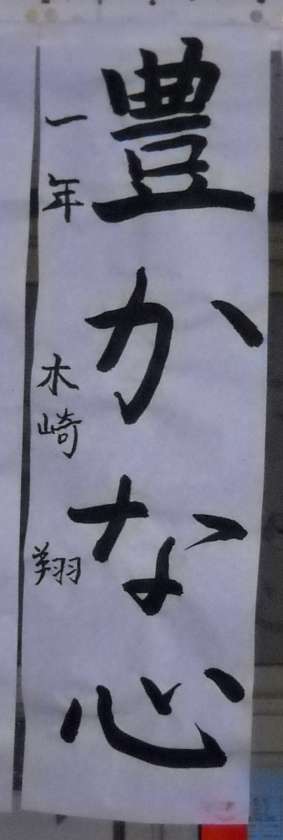 豊かな心
一年 木崎 翔